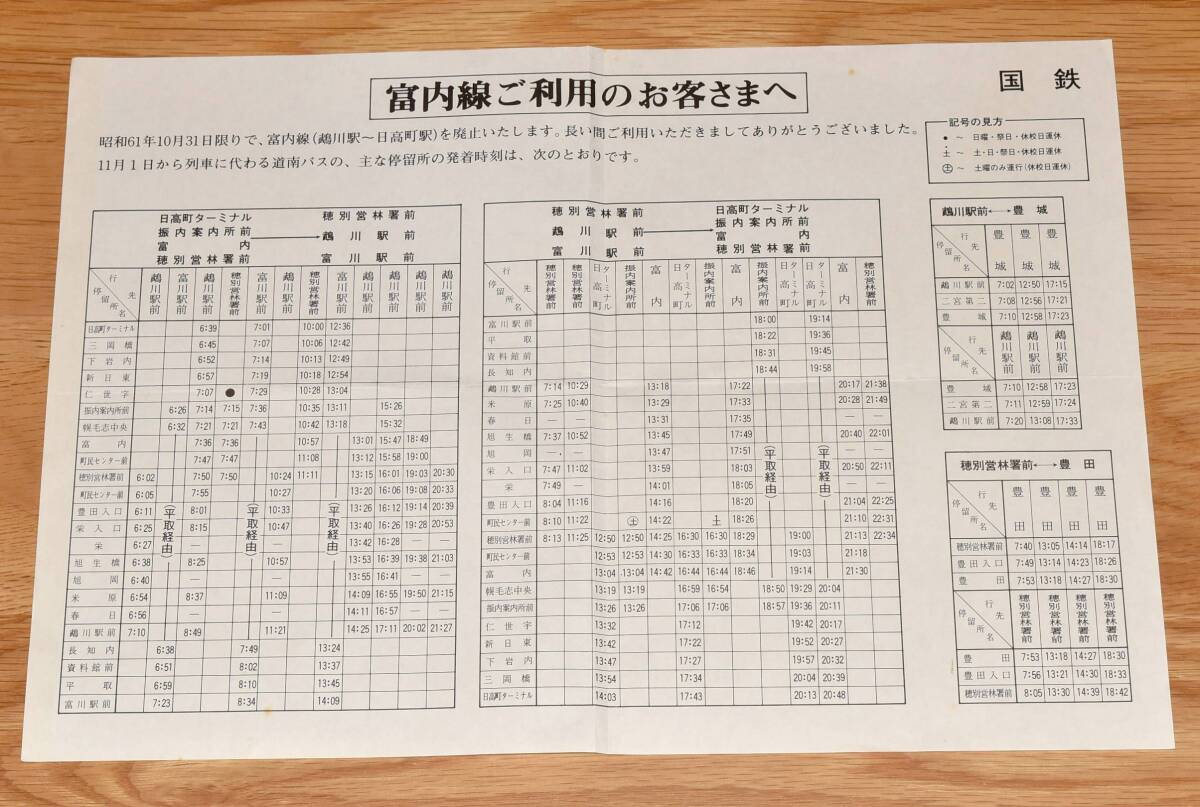 富内線ご利用のお客さまへ
国鉄
昭和61年10月31日限りで、富内線(鵡川駅～日高町駅)を廃止いたします。長い間ご利用いただきましてありがとうございました。
11月1日から列車に代わる道南バスの、主な停留所の発着時刻は、次のとおりです。
記号の見方
●～ 日曜・祭日・休校日運休
土～ 土・日・祭日・休校日運休
㊏～ 土曜のみ運行(休校日運休)
日高町ターミナル 穂別営林署前
振内案内所前 鵡川駅前
富内
穂別営林署前 富川駅前
行先 停留所名 鵡川駅前 富川駅前 鵡川駅前 穂別営林署前 富川駅前 鵡川駅前 穂別営林署前 富川駅前 鵡川駅前 鵡川駅前 鵡川駅前 鵡川駅前
日高町ターミナル 6:39 7:01 10:00 12:36
三岡橋 6:45 7:07 10:06 12:42
下岩内 6:52 7:14 10:13 12:49
新日東 6:57 7:19 10:18 12:54
仁世宇 7:07 ● 7:29 10:28 13:04
振内案内所前 6:26 7:14 7:15 7:36 10:35 13:11 15:26
幌毛志中央 6:32 7:21 7:21 7:43 10:42 13:18 15:32
富内 7:36 7:36 10:57 13:01 15:47 18:49
町民センター前 7:47 7:47 11:08 13:12 15:58 19:00
穂別営林署前 6:02 7:50 7:50 10:24 11:11 13:15 16:01 19:03 20:30
町民センター前 6:05 7:55 10:27 13:20 16:06 19:08 20:33
豊田入口 6:11 8:01 10:33 13:26 16:12 19:14 20:39
栄入口 6:25 8:15 10:47 13:40 16:26 19:28 20:53
栄 6:27 — — 13:42 16:28
旭生橋 6:38 8:25 10:57 13:53 16:39 19:38 21:03
旭岡 6:40 — — 13:55 16:41 — —
米原 6:54 8:37 11:09 14:09 16:55 19:50 21:15
春日 6:56 — — 14:11 16:57 — —
鵡川駅前 7:10 8:49 11:21 14:25 17:11 20:02 21:27
(平取経由) (平取経由) (平取経由)
長知内 6:38 7:49 13:24
資料館前 6:51 8:02 13:37
平取 6:59 8:10 13:45
富川駅前 7:23 8:34 14:09
穂別営林署前 日高町ターミナル
鵡川駅前 振内案内所前
富内
富川駅前 穂別営林署前
行先 停留所名 穂別営林署前 穂別営林署前 日高町ターミナル 振内案内所前 富内 日高町ターミナル 振内案内所前 富内 振内案内所前 日高町ターミナル 日高町ターミナル 富内 穂別営林署前
富川駅前 18:00 19:14
平取 18:22 19:36
資料館前 18:31 19:45
長知内 18:44 19:58
鵡川駅前 7:14 10:29 13:18 17:22 20:17 21:38
米原 7:25 10:40 13:29 17:33 20:28 21:49
春日 — — 13:31 17:35 — —
旭生橋 7:37 10:52 13:45 17:49 20:40 22:01
旭岡 — — 13:47 17:51 — —
栄入口 7:47 11:02 13:59 18:03 20:50 22:11
栄 7:49 — 14:01 18:05 — —
豊田入口 8:04 11:16 14:16 18:20 21:04 22:25
町民センター前 8:10 11:22 ㊏ 14:22 土 18:26 21:10 22:31
穂別営林署前 8:13 11:25 12:50 12:50 14:25 16:30 16:30 18:29 19:00 21:13 22:34
町民センター前 12:53 12:53 14:30 16:33 16:33 18:34 19:03 21:18
富内 13:04 13:04 14:42 16:44 16:44 18:46 19:14 21:30
幌毛志中央 13:19 13:19 16:59 16:54 18:50 19:29 20:04
振内案内所前 13:26 13:26 17:06 17:06 18:57 19:36 20:11
仁世宇 13:32 17:12 19:42 20:17
新日東 13:42 17:22 19:52 20:27
下岩内 13:47 17:27 19:57 20:32
三岡橋 13:54 17:34 20:04 20:39
日高町ターミナル 14:03 17:43 20:13 20:48
(平取経由) (平取経由)
鵡川駅前←→豊城
行先 停留所名 豊城 豊城 豊城
鵡川駅前 7:02 12:50 17:15
二宮第二 7:08 12:56 17:21
豊城 7:10 12:58 17:23
行先 停留所名 鵡川駅前 鵡川駅前 鵡川駅前
豊城 7:10 12:58 17:23
二宮第二 7:11 12:59 17:24
鵡川駅前 7:20 13:08 17:33
穂別営林署前←→豊田
行先 停留所名 豊田 豊田 豊田 豊田
穂別営林署前 7:40 13:05 14:14 18:17
豊田入口 7:49 13:14 14:23 18:26
豊田 7:53 13:18 14:27 18:30
行先 停留所名 穂別営林署前 穂別営林署前 穂別営林署前 穂別営林署前
豊田 7:53 13:18 14:27 18:30
豊田入口 7:56 13:21 14:30 18:33
穂別営林署前 8:05 13:30 14:39 18:42